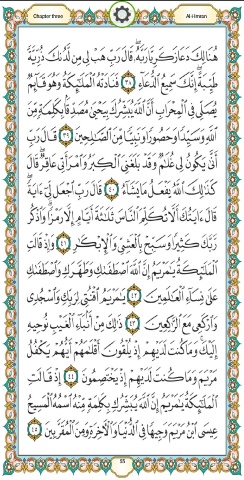 Chapter three
Al-Imran
هُنَالِكَ دَعَا زَكَرِيَّا رَبَّهُۥ قَالَ رَبِّ هَبْ لِى مِن لَّدُنكَ ذُرِّيَّةً
طَيِّبَةً إِنَّكَ سَمِيعُ ٱلدُّعَآءِ ٣٨ فَنَادَتْهُ ٱلْمَلَـٰٓئِكَةُ وَهُوَ قَآئِمٌ
يُصَلِّى فِى ٱلْمِحْرَابِ أَنَّ ٱللَّهَ يُبَشِّرُكَ بِيَحْيَىٰ مُصَدِّقًۢا بِكَلِمَةٍ مِّنَ
ٱللَّهِ وَسَيِّدًا وَحَصُورًا وَنَبِيًّا مِّنَ ٱلصَّـٰلِحِينَ ٣٩ قَالَ رَبِّ
أَنَّىٰ يَكُونُ لِى غُلَـٰمٌ وَقَدْ بَلَغَنِىَ ٱلْكِبَرُ وَٱمْرَأَتِى عَاقِرٌ قَالَ
كَذَٰلِكَ ٱللَّهُ يَفْعَلُ مَا يَشَآءُ ٤٠ قَالَ رَبِّ ٱجْعَل لِّىٓ ءَايَةً
قَالَ ءَايَتُكَ أَلَّا تُكَلِّمَ ٱلنَّاسَ ثَلَـٰثَةَ أَيَّامٍ إِلَّا رَمْزًا وَٱذْكُر
رَّبَّكَ كَثِيرًا وَسَبِّحْ بِٱلْعَشِىِّ وَٱلْإِبْكَـٰرِ ٤١ وَإِذْ قَالَتِ
ٱلْمَلَـٰٓئِكَةُ يَـٰمَرْيَمُ إِنَّ ٱللَّهَ ٱصْطَفَىٰكِ وَطَهَّرَكِ وَٱصْطَفَىٰكِ
عَلَىٰ نِسَآءِ ٱلْعَـٰلَمِينَ ٤٢ يَـٰمَرْيَمُ ٱقْنُتِى لِرَبِّكِ وَٱسْجُدِى
وَٱرْكَعِى مَعَ ٱلرَّٰكِعِينَ ٤٣ ذَٰلِكَ مِنْ أَنۢبَآءِ ٱلْغَيْبِ نُوحِيهِ
إِلَيْكَ وَمَا كُنتَ لَدَيْهِمْ إِذْ يُلْقُونَ أَقْلَـٰمَهُمْ أَيُّهُمْ يَكْفُلُ
مَرْيَمَ وَمَا كُنتَ لَدَيْهِمْ إِذْ يَخْتَصِمُونَ ٤٤ إِذْ قَالَتِ
ٱلْمَلَـٰٓئِكَةُ يَـٰمَرْيَمُ إِنَّ ٱللَّهَ يُبَشِّرُكِ بِكَلِمَةٍ مِّنْهُ ٱسْمُهُ ٱلْمَسِيحُ
عِيسَى ٱبْنُ مَرْيَمَ وَجِيهًا فِى ٱلدُّنْيَا وَٱلْـَٔاخِرَةِ وَمِنَ ٱلْمُقَرَّبِينَ ٤٥
55